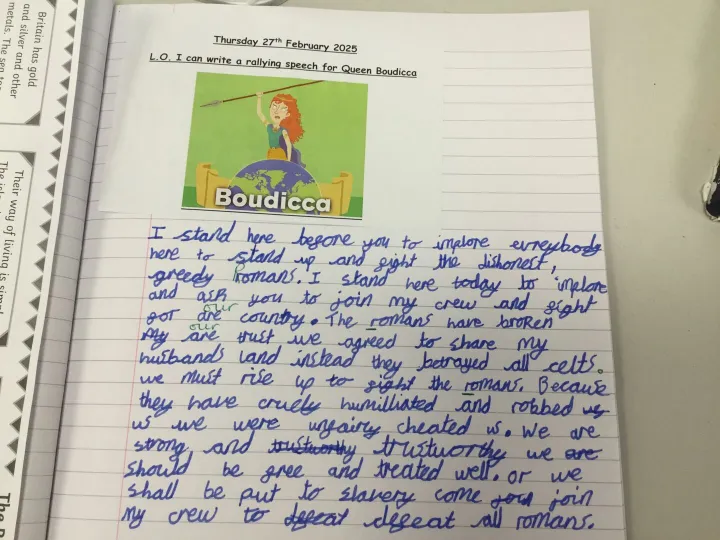 Britain has gold
and silver and other
metals. The sea
Their way of living is
Thursday 27th February 2025
L.O. I can write a rallying speech for Queen Boudicca
Boudicca
I stand here before you to implore evreybody
here to stand up and fight the dishonest,
greedy Romans. I stand here today to implore
and ask you to join my crew and fight
our
for are country. The romans have broken
our
My are trust we agreed to share my
husbands land instead they betrayed all celts.
we must rise up to fight the romans. Because
they have cruely humilliated and robbed us
us we were unfairly cheated us. We are
strong, and trustworthy trustworthy we are
should be free and treated well. or we
shall be put to slavery come join
my crew to defeat defeat all romans.